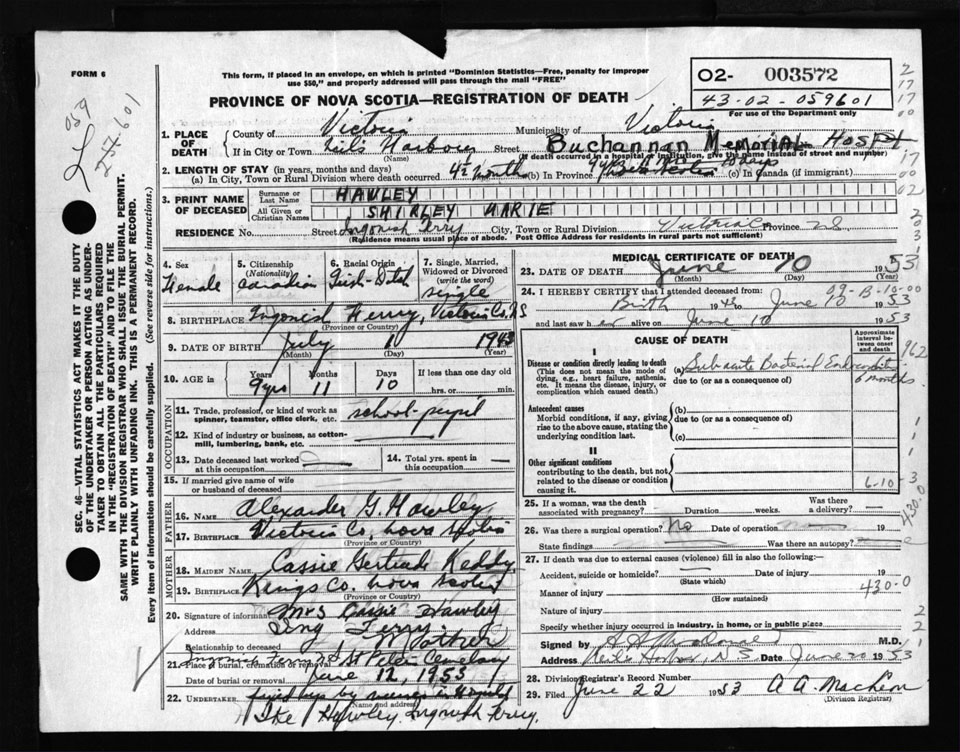 FORM 6
This form, if placed in an envelope, on which is printed "Dominion Statistics—Free, penalty for improper
use $50," and properly addressed will pass through the mail "FREE"
02- 003572
43-02-059601
For use of the Department only
PROVINCE OF NOVA SCOTIA—REGISTRATION OF DEATH
059
247.601
1. PLACE OF DEATH
County of Victoria Municipality of Victoria
If in City or Town Neil's Harbour Street Buchannan Memorial Hospt
(Name) (If death occurred in a hospital or institution, give the name instead of street and number)
2. LENGTH OF STAY (in years, months and days)
(a) In City, Town or Rural Division where death occurred 4½ months (b) In Province (c) In Canada (if immigrant)
3. PRINT NAME OF DECEASED
Surname or Last Name HAWLEY
All Given or Christian Names SHIRLEY MARIE
RESIDENCE No. Street Ingonish Ferry City, Town or Rural Division Victoria Co Province NS
(Residence means usual place of abode. Post Office Address for residents in rural parts not sufficient)
4. Sex Female
5. Citizenship (Nationality) Canadian
6. Racial Origin Irish-Dutch
7. Single, Married, Widowed or Divorced (write the word) single
8. BIRTHPLACE Ingonish Ferry, Victoria Co. NS
(Province or Country)
9. DATE OF BIRTH July 1 1943
(Month) (Day) (Year)
10. AGE in Years Months Days If less than one day old
9 yrs 11 10 hrs. or min.
OCCUPATION
11. Trade, profession, or kind of work as spinner, teamster, office clerk, etc. school-pupil
12. Kind of industry or business, as cotton-mill, lumbering, bank, etc.
13. Date deceased last worked at this occupation
14. Total yrs. spent in this occupation
15. If married give name of wife or husband of deceased
FATHER
16. NAME Alexander G. Hawley
17. BIRTHPLACE Victoria Co Nova Scotia
(Province or Country)
MOTHER
18. MAIDEN NAME Cassie Gertrude Keddy
19. BIRTHPLACE Kings Co. Nova Scotia
(Province or Country)
20. Signature of informant Mrs Cassie Hawley
Address Ing Ferry
Relationship to deceased Mother
21. Place of burial, cremation or removal Ingonish Ferry St Peter Cemetery
Date of burial or removal June 12, 1953
22. UNDERTAKER fixed up by nurses in Hospital
(Name and address)
Ike Hawley. Ingonish Ferry.
MEDICAL CERTIFICATE OF DEATH
23. DATE OF DEATH June 10 1953
(Month) (Day) (Year)
24. I HEREBY CERTIFY that I attended deceased from
09-B-10-00
Birth 1943 June 10 1953
and last saw h alive on June 10 1953
CAUSE OF DEATH
Approximate interval between onset and death
I
Disease or condition directly leading to death
(This does not mean the mode of dying, e.g., heart failure, asthenia, etc. It means the disease, injury, or complication which caused death.)
(a) Subacute Bacterial Endocarditis 6 months
due to (or as a consequence of)
Antecedent causes
Morbid conditions, if any, giving rise to the above cause, stating the underlying condition last.
(b)
due to (or as a consequence of)
(c)
II
Other significant conditions
contributing to the death, but not related to the disease or condition causing it.
6-10-3
25. If a woman, was the death associated with pregnancy? Duration weeks. Was there a delivery?
430.0
26. Was there a surgical operation? No Date of operation 19
State findings Was there an autopsy?
27. If death was due to external causes (violence) fill in also the following:—
Accident, suicide or homicide? Date of injury 19
(State which)
Manner of injury 430-0
(How sustained)
Nature of injury
Specify whether injury occurred in industry, in home, or in public place
Signed by M.D.
Address Neil's Harbour, N.S. Date June 20 1953
28. Division Registrar's Record Number
29. Filed June 22 1953 A A MacLeon
(Division Registrar)
SEC. 46—VITAL STATISTICS ACT MAKES IT THE DUTY
OF THE UNDERTAKER OR PERSON ACTING AS UNDER-
TAKER TO OBTAIN ALL THE PARTICULARS REQUIRED
IN THE "REGISTRATION OF DEATH" AND TO FILE THE
SAME WITH THE DIVISION REGISTRAR WHO SHALL ISSUE THE BURIAL PERMIT.
WRITE PLAINLY WITH UNFADING INK. THIS IS A PERMANENT RECORD.
Every item of information should be carefully supplied. (See reverse side for instructions.)